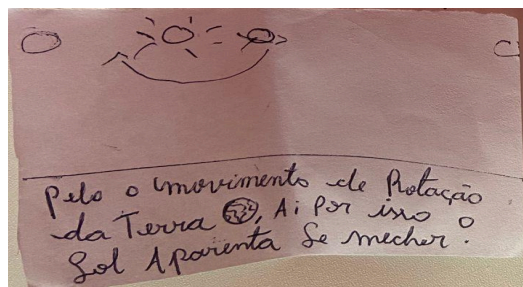 Pelo o movimento de Rotação
da Terra, Ai Por isso o
Sol Aparenta Se mecher.